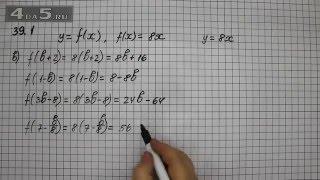 4DA5.RU
39.1 y = f(x), f(x) = 8x y = 8x
б) f(b+2) = 8(b+2) = 8b+16
f(1-b) = 8(1-b) = 8-8b
f(3b-8) = 8(3b-8) = 24b-64
f(7-b/8) = 8(7-b/8) = 56